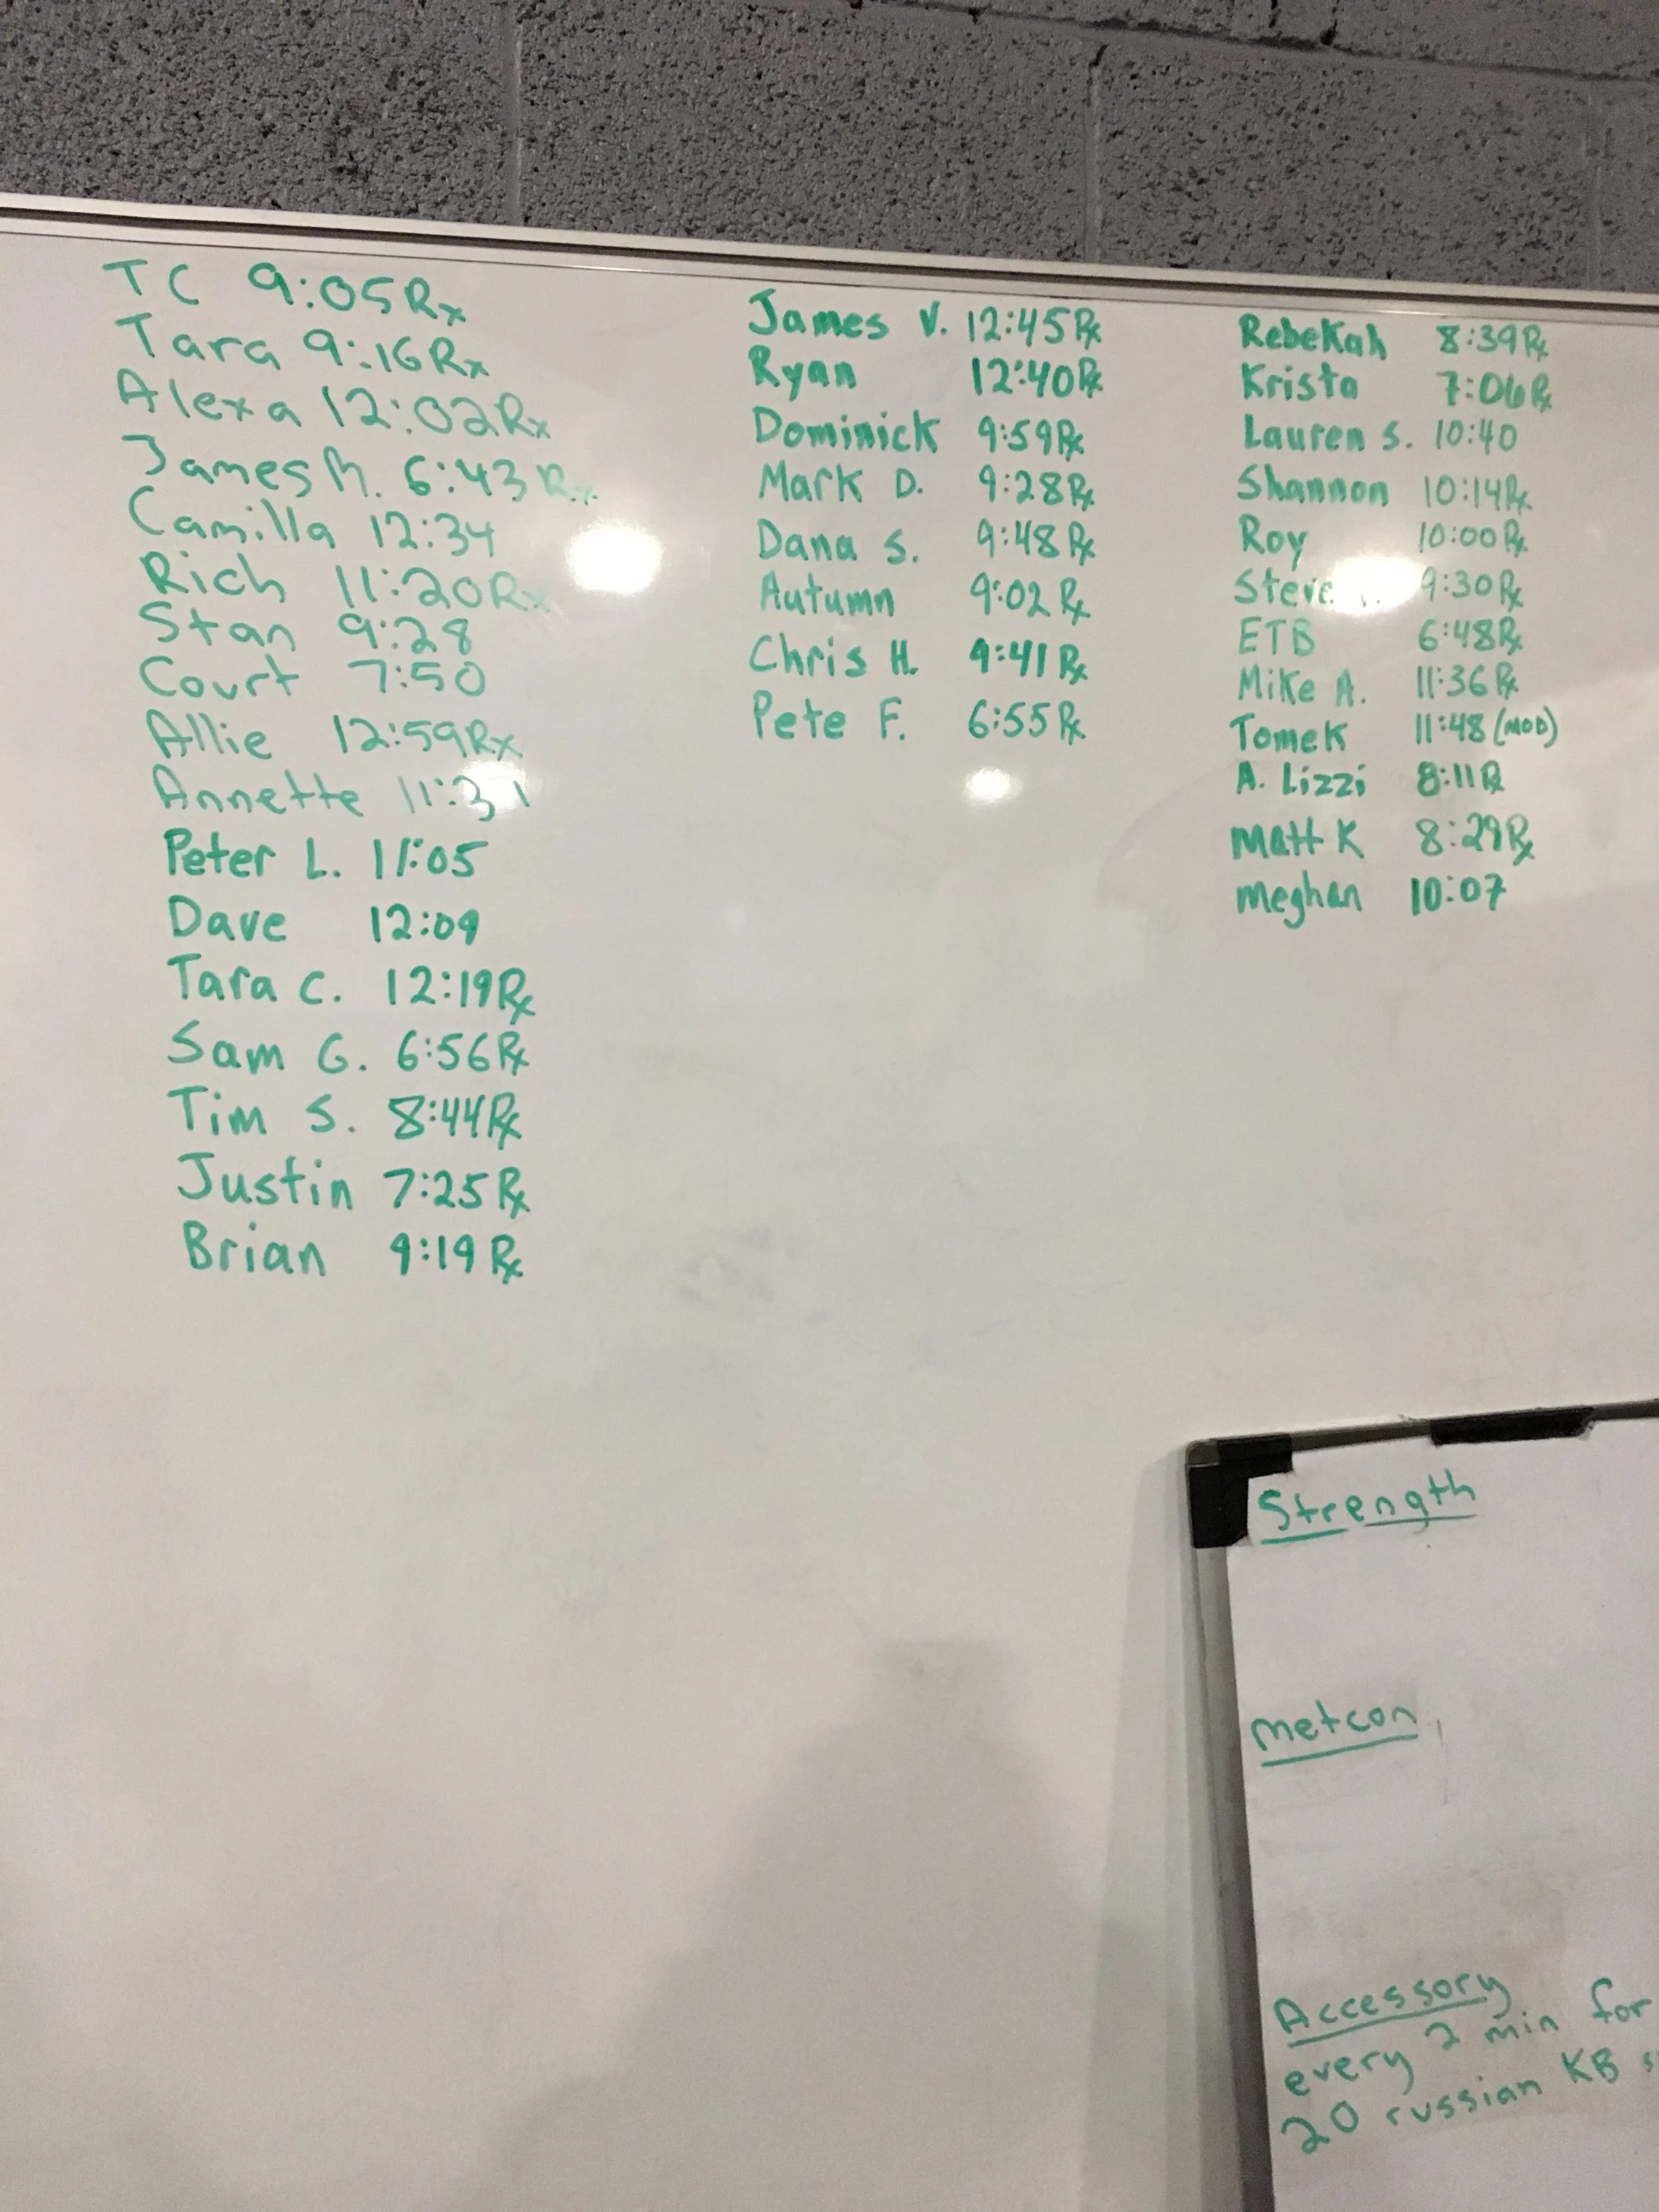 TC 9:05 Rx
Tara 9:16 Rx
Alexa 12:02 Rx
James M. 6:43 Rx
Camilla 12:34
Rich 11:20 Rx
Stan 9:28
Court 7:50
Allie 12:59 Rx
Annette 11:31
Peter L. 11:05
Dave 12:09
Tara C. 12:19 Rx
Sam G. 6:56 Rx
Tim S. 8:44 Rx
Justin 7:25 Rx
Brian 9:19 Rx
James V. 12:45 Rx
Ryan 12:40 Rx
Dominick 9:59 Rx
Mark D. 9:28 Rx
Dana S. 9:48 Rx
Autumn 9:02 Rx
Chris H. 9:41 Rx
Pete F. 6:55 Rx
Rebekah 8:39 Rx
Krista 7:06 Rx
Lauren S. 10:40
Shannon 10:14 Rx
Roy 10:00 Rx
Steve 9:30 Rx
ETB 6:48 Rx
Mike A. 11:36 Rx
Tomek 11:48 (MOD)
A. Lizzi 8:11 Rx
Matt K 8:29 Rx
meghan 10:07
Strength
metcon
Accessory
every 2 min for
20 russian KB